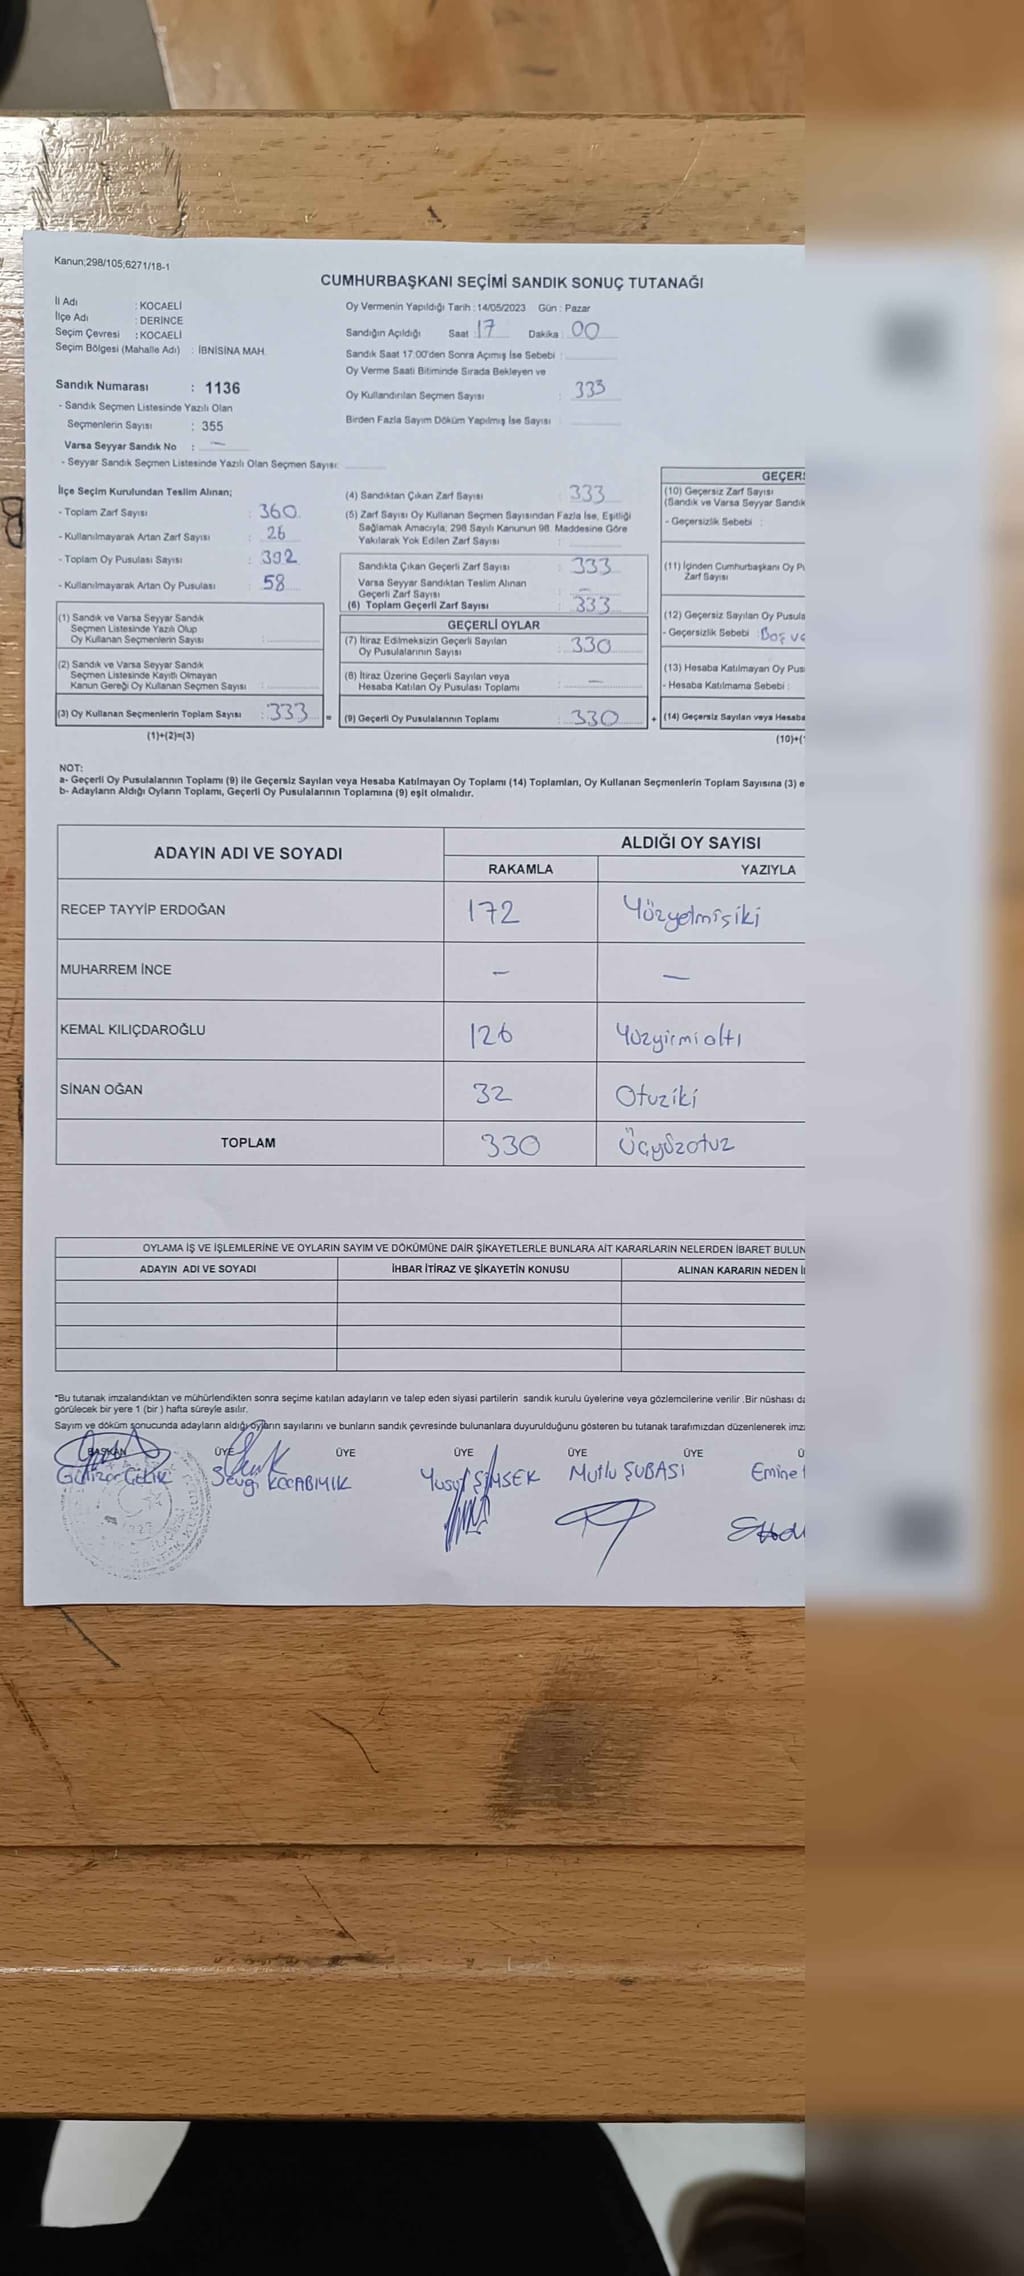 Kanun;298/105;6271/18-1
CUMHURBAŞKANI SEÇİMİ SANDIK SONUÇ TUTANAĞI
İl Adı : KOCAELİ
İlçe Adı : DERİNCE
Seçim Çevresi : KOCAELİ
Seçim Bölgesi (Mahalle Adı) : İBNİSİNA MAH.
Oy Vermenin Yapıldığı Tarih : 14/05/2023 Gün : Pazar
Sandığın Açıldığı Saat : 17 Dakika : 00
Sandık Saat 17:00'den Sonra Açımış İse Sebebi :
Oy Verme Saati Bitiminde Sırada Bekleyen ve
Oy Kullandırılan Seçmen Sayısı : 333
Birden Fazla Sayım Döküm Yapılmış İse Sayısı :
Sandık Numarası : 1136
- Sandık Seçmen Listesinde Yazılı Olan
Seçmenlerin Sayısı : 355
Varsa Seyyar Sandık No : —
- Seyyar Sandık Seçmen Listesinde Yazılı Olan Seçmen Sayısı:
İlçe Seçim Kurulundan Teslim Alınan;
- Toplam Zarf Sayısı : 360
- Kullanılmayarak Artan Zarf Sayısı : 26
- Toplam Oy Pusulası Sayısı : 392
- Kullanılmayarak Artan Oy Pusulası : 58
(1) Sandık ve Varsa Seyyar Sandık
Seçmen Listesinde Yazılı Olup
Oy Kullanan Seçmenlerin Sayısı :
(2) Sandık ve Varsa Seyyar Sandık
Seçmen Listesinde Kayıtlı Olmayan
Kanun Gereği Oy Kullanan Seçmen Sayısı :
(3) Oy Kullanan Seçmenlerin Toplam Sayısı : 333 =
(1)+(2)=(3)
(4) Sandıktan Çıkan Zarf Sayısı : 333
(5) Zarf Sayısı Oy Kullanan Seçmen Sayısından Fazla İse, Eşitliği
Sağlamak Amacıyla; 298 Sayılı Kanunun 98. Maddesine Göre
Yakılarak Yok Edilen Zarf Sayısı :
Sandıkta Çıkan Geçerli Zarf Sayısı : 333
Varsa Seyyar Sandıktan Teslim Alınan
Geçerli Zarf Sayısı : —
(6) Toplam Geçerli Zarf Sayısı : 333
GEÇERLİ OYLAR
(7) İtiraz Edilmeksizin Geçerli Sayılan
Oy Pusulalarının Sayısı : 330
(8) İtiraz Üzerine Geçerli Sayılan veya
Hesaba Katılan Oy Pusulası Toplamı : —
(9) Geçerli Oy Pusulalarının Toplamı : 330 +
GEÇERS
(10) Geçersiz Zarf Sayısı
(Sandık ve Varsa Seyyar Sandık
- Geçersizlik Sebebi :
(11) İçinden Cumhurbaşkanı Oy P
Zarf Sayısı
(12) Geçersiz Sayılan Oy Pusula
- Geçersizlik Sebebi : Boş ve
(13) Hesaba Katılmayan Oy Pus
- Hesaba Katılmama Sebebi :
(14) Geçersiz Sayılan veya Hesaba
(10)+(
NOT:
a- Geçerli Oy Pusulalarının Toplamı (9) ile Geçersiz Sayılan veya Hesaba Katılmayan Oy Toplamı (14) Toplamları, Oy Kullanan Seçmenlerin Toplam Sayısına (3) e
b- Adayların Aldığı Oyların Toplamı, Geçerli Oy Pusulalarının Toplamına (9) eşit olmalıdır.
ADAYIN ADI VE SOYADI ALDIĞI OY SAYISI
RAKAMLA YAZIYLA
RECEP TAYYİP ERDOĞAN 172 Yüzyetmişiki
MUHARREM İNCE — —
KEMAL KILIÇDAROĞLU 126 Yüzyirmialtı
SİNAN OĞAN 32 Otuziki
TOPLAM 330 Üçyüzotuz
OYLAMA İŞ VE İŞLEMLERİNE VE OYLARIN SAYIM VE DÖKÜMÜNE DAİR ŞİKAYETLERLE BUNLARA AİT KARARLARIN NELERDEN İBARET BULUN
ADAYIN ADI VE SOYADI İHBAR İTİRAZ VE ŞİKAYETİN KONUSU ALINAN KARARIN NEDEN İ
*Bu tutanak imzalandıktan ve mühürlendikten sonra seçime katılan adayların ve talep eden siyasi partilerin sandık kurulu üyelerine veya gözlemcilerine verilir .Bir nüshası da
görülecek bir yere 1 (bir ) hafta süreyle asılır.
Sayım ve döküm sonucunda adayların aldığı oyların sayılarını ve bunların sandık çevresinde bulunanlara duyurulduğunu gösteren bu tutanak tarafımızdan düzenlenerek imz
BAŞKAN ÜYE ÜYE ÜYE ÜYE ÜYE Ü
Gülizar ÇELİK Sevgi KOCABIYIK Yusuf ŞİMŞEK Mutlu ŞUBAŞI Emine